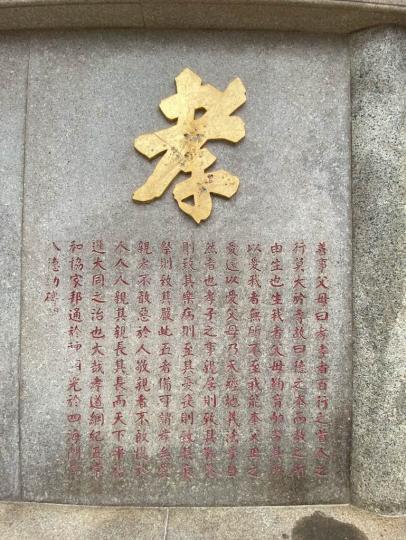 孝
善事父母曰孝孝者百行之首人之
行莫大於孝故曰德之本而教之所
由生也生我者父母鞠育劬勞
以愛我者無所不至我能本父母之
愛還以愛父母乃天經地義法
然者也孝子之事親居則致其敬養
則致其樂病則至其憂喪則致其哀
祭則致其嚴此五者備可謂孝矣
親者不敢惡於人敬親者不敢慢於
人人人親其親長其長而天下平
進大同之治也大哉孝道綱紀
和協家邦通於神明光於四海
八德功碑